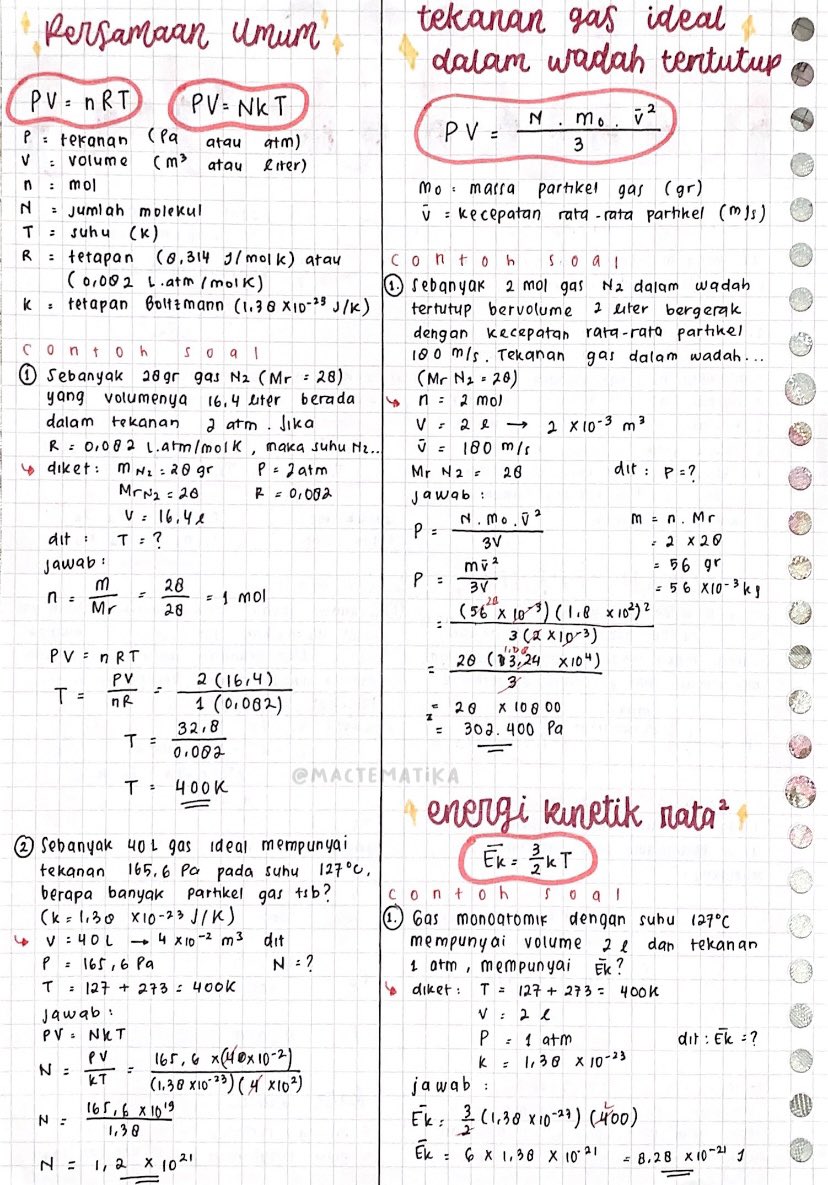 Persamaan Umum
PV = nRT
PV = NkT
P = tekanan (Pa atau atm)
V = volume (m³ atau liter)
n = mol
N = jumlah molekul
T = suhu (K)
R = tetapan (8,314 J/molK) atau
(0,082 L.atm/molK)
k = tetapan Boltzmann (1,38 x10⁻²³ J/K)
contoh soal
① Sebanyak 28gr gas N₂ (Mr = 28)
yang volumenya 16,4 liter berada
dalam tekanan 2 atm. Jika
R = 0,082 L.atm/molK, maka suhu N₂...
↳ diket: m N₂ = 28 gr P = 2 atm
Mr N₂ = 28 R = 0,082
V = 16,4 l
dit : T = ?
jawab :
n = m/Mr = 28/28 = 1 mol
PV = nRT
T = PV/nR = 2(16,4)/1(0,082)
T = 32,8/0,082
T = 400K
② Sebanyak 40L gas ideal mempunyai
tekanan 165,6 Pa pada suhu 127°C,
berapa banyak partikel gas tsb?
(k = 1,38 x10⁻²³ J/K)
↳ V = 40L → 4 x10⁻² m³ dit
P = 165,6 Pa N = ?
T = 127 + 273 = 400K
jawab :
PV = NkT
N = PV/kT = 165,6 x(40x10⁻²)/(1,38 x10⁻²³)(4 x10²)
N = 165,6 x10¹⁹/1,38
N = 1,2 x 10²¹
tekanan gas ideal
dalam wadah tertutup
PV = N . m₀ . v̄²/3
m₀ = massa partikel gas (gr)
v̄ = kecepatan rata-rata partikel (m/s)
contoh soal
①. Sebanyak 2 mol gas N₂ dalam wadah
tertutup bervolume 2 liter bergerak
dengan kecepatan rata-rata partikel
180 m/s. Tekanan gas dalam wadah...
(Mr N₂ = 28)
↳ n = 2 mol
V = 2 l → 2 x10⁻³ m³
v̄ = 180 m/s
Mr N₂ = 28 dit : P = ?
jawab :
P = N . m₀ . v̄²/3V
P = mv̄²/3V
m = n . Mr
= 2 x28
= 56 gr
= 56 x10⁻³ kg
28
= (56 x 10⁻³)(1,8 x10²)²/3(2 x10⁻³)
1,08
= 28 (3,24 x10⁴)/3
= 28 x 10800
= 302.400 Pa
@MACTEMATIKA
energi kinetik rata²
Ēk = 3/2 kT
contoh soal
①. Gas monoatomik dengan suhu 127°C
mempunyai volume 2 l dan tekanan
1 atm, mempunyai Ēk?
↳ diket : T = 127 + 273 = 400K
V = 2 l
P = 1 atm dit : Ēk = ?
k = 1,38 x10⁻²³
jawab :
2
Ēk = 3/2 (1,38 x10⁻²³)(400)
Ēk = 6 x 1,38 x 10⁻²¹ = 8,28 x10⁻²¹ J